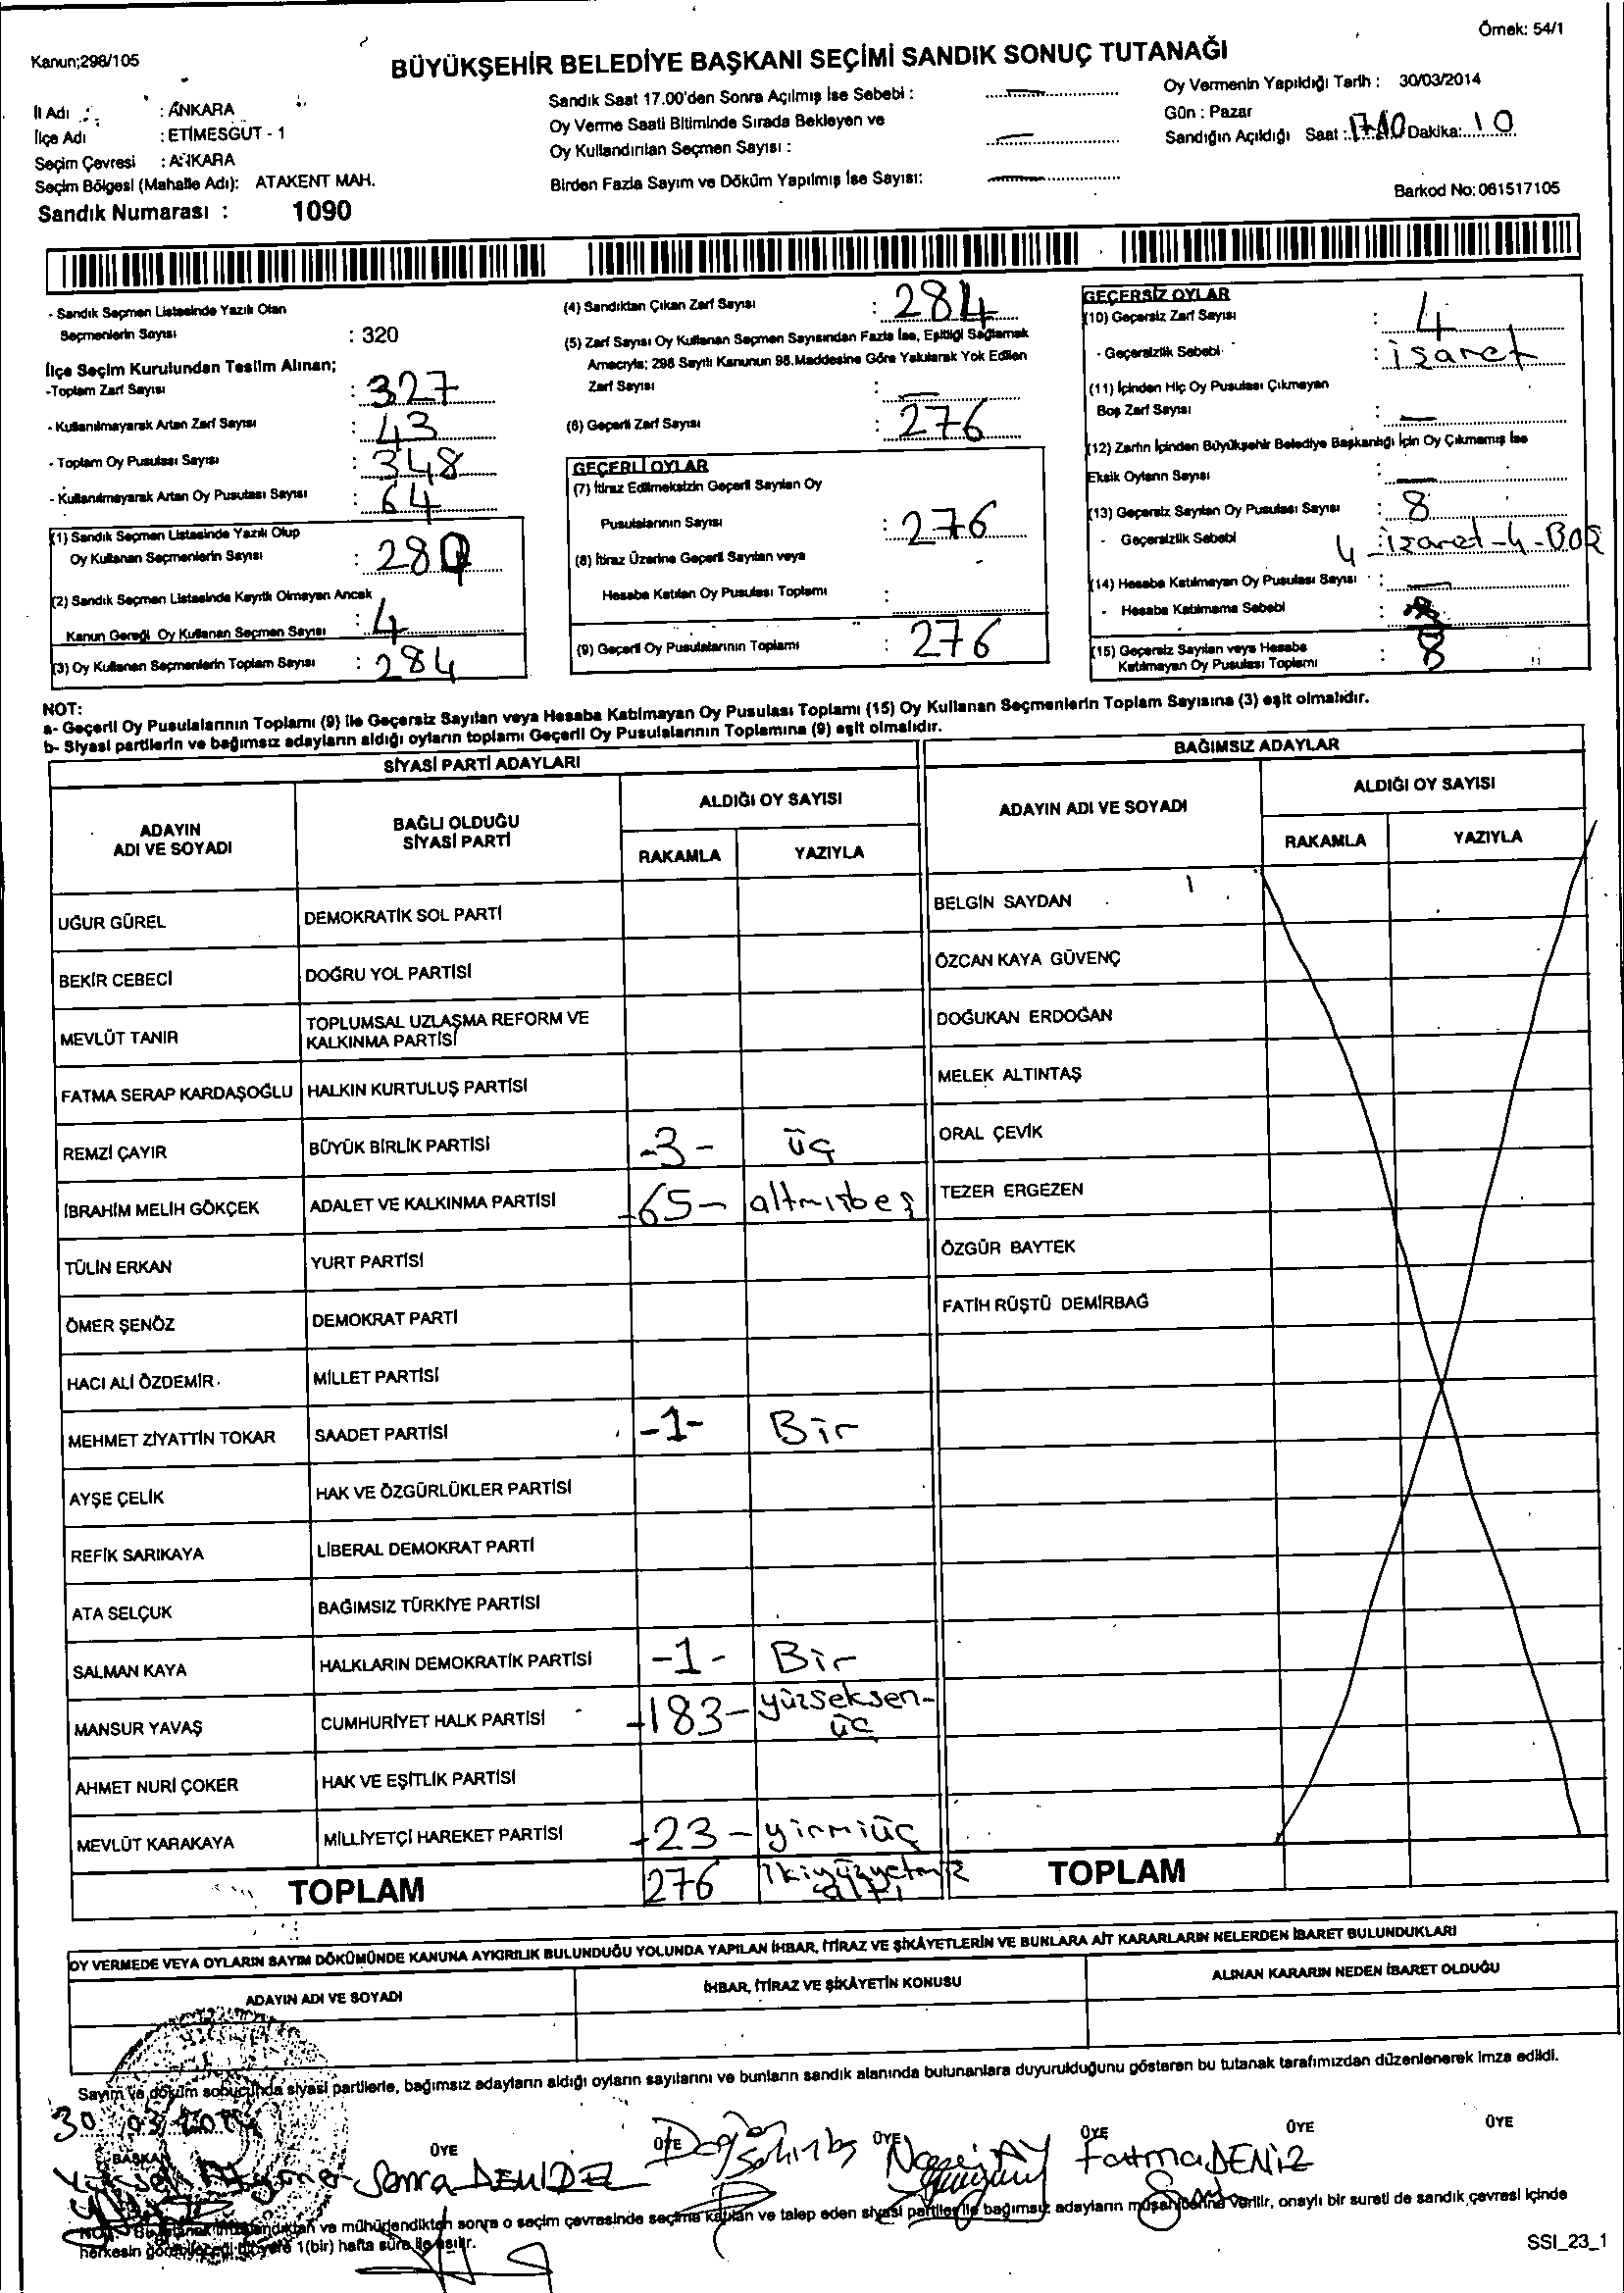 Örnek: 54/1
Kanun;298/105
BÜYÜKŞEHİR BELEDİYE BAŞKANI SEÇİMİ SANDIK SONUÇ TUTANAĞI
İl Adı : ANKARA
İlçe Adı : ETİMESGUT - 1
Seçim Çevresi : ANKARA
Seçim Bölgesi (Mahalle Adı): ATAKENT MAH.
Sandık Numarası : 1090
Sandık Saat 17.00'den Sonra Açılmış İse Sebebi : —
Oy Verme Saati Bitiminde Sırada Bekleyen ve
Oy Kullandırılan Seçmen Sayısı : —
Birden Fazla Sayım ve Döküm Yapılmış İse Sayısı: —
Oy Vermenin Yapıldığı Tarih : 30/03/2014
Gün : Pazar
Sandığın Açıldığı Saat : 17:10 Dakika: 10
Barkod No: 061517105
- Sandık Seçmen Listesinde Yazılı Olan
Seçmenlerin Sayısı : 320
İlçe Seçim Kurulundan Teslim Alınan;
-Toplam Zarf Sayısı : 327
- Kullanılmayarak Artan Zarf Sayısı : 43
- Toplam Oy Pusulası Sayısı : 348
- Kullanılmayarak Artan Oy Pusulası Sayısı : 64
(1) Sandık Seçmen Listesinde Yazılı Olup
Oy Kullanan Seçmenlerin Sayısı : 280
(2) Sandık Seçmen Listesinde Kayıtlı Olmayan Ancak
Kanun Gereği Oy Kullanan Seçmen Sayısı : 4
(3) Oy Kullanan Seçmenlerin Toplam Sayısı : 284
(4) Sandıktan Çıkan Zarf Sayısı : 284
(5) Zarf Sayısı Oy Kullanan Seçmen Sayısından Fazla İse, Eşitliği Sağlamak
Amacıyla; 298 Sayılı Kanunun 98.Maddesine Göre Yakılarak Yok Edilen
Zarf Sayısı : —
(6) Geçerli Zarf Sayısı : 276
GEÇERLİ OYLAR
(7) İtiraz Edilmeksizin Geçerli Sayılan Oy
Pusulalarının Sayısı : 276
(8) İtiraz Üzerine Geçerli Sayılan veya
Hesaba Katılan Oy Pusulası Toplamı :
(9) Geçerli Oy Pusulalarının Toplamı : 276
GEÇERSİZ OYLAR
(10) Geçersiz Zarf Sayısı : 4
- Geçersizlik Sebebi : işaret
(11) İçinden Hiç Oy Pusulası Çıkmayan
Boş Zarf Sayısı : —
(12) Zarfın İçinden Büyükşehir Belediye Başkanlığı İçin Oy Çıkmamış İse
Eksik Oyların Sayısı : —
(13) Geçersiz Sayılan Oy Pusulası Sayısı : 8
- Geçersizlik Sebebi : 4 - izaret - 4 - BOŞ
(14) Hesaba Katılmayan Oy Pusulası Sayısı : —
- Hesaba Katılmama Sebebi :
(15) Geçersiz Sayılan veya Hesaba
Katılmayan Oy Pusulası Toplamı : 8
NOT:
a- Geçerli Oy Pusulalarının Toplamı (9) ile Geçersiz Sayılan veya Hesaba Katılmayan Oy Pusulası Toplamı (15) Oy Kullanan Seçmenlerin Toplam Sayısına (3) eşit olmalıdır.
b- Siyasi partilerin ve bağımsız adayların aldığı oyların toplamı Geçerli Oy Pusulalarının Toplamına (9) eşit olmalıdır.
SİYASİ PARTİ ADAYLARI
ADAYIN ADI VE SOYADI BAĞLI OLDUĞU SİYASİ PARTİ ALDIĞI OY SAYISI
RAKAMLA YAZIYLA
UĞUR GÜREL DEMOKRATİK SOL PARTİ
BEKİR CEBECİ DOĞRU YOL PARTİSİ
MEVLÜT TANIR TOPLUMSAL UZLAŞMA REFORM VE
KALKINMA PARTİSİ
FATMA SERAP KARDAŞOĞLU HALKIN KURTULUŞ PARTİSİ
REMZİ ÇAYIR BÜYÜK BİRLİK PARTİSİ -3- üç
İBRAHİM MELİH GÖKÇEK ADALET VE KALKINMA PARTİSİ -65- altmışbeş
TÜLİN ERKAN YURT PARTİSİ
ÖMER ŞENÖZ DEMOKRAT PARTİ
HACI ALİ ÖZDEMİR MİLLET PARTİSİ
MEHMET ZİYATTİN TOKAR SAADET PARTİSİ -1- Bir
AYŞE ÇELİK HAK VE ÖZGÜRLÜKLER PARTİSİ
REFİK SARIKAYA LİBERAL DEMOKRAT PARTİ
ATA SELÇUK BAĞIMSIZ TÜRKİYE PARTİSİ
SALMAN KAYA HALKLARIN DEMOKRATİK PARTİSİ -1- Bir
MANSUR YAVAŞ CUMHURİYET HALK PARTİSİ -183- yüzseksen-
üç
AHMET NURİ ÇOKER HAK VE EŞİTLİK PARTİSİ
MEVLÜT KARAKAYA MİLLİYETÇİ HAREKET PARTİSİ -23- yirmiüç
TOPLAM 276 ikiyüzyetmiş
altı
BAĞIMSIZ ADAYLAR
ADAYIN ADI VE SOYADI ALDIĞI OY SAYISI
RAKAMLA YAZIYLA
BELGİN SAYDAN
ÖZCAN KAYA GÜVENÇ
DOĞUKAN ERDOĞAN
MELEK ALTINTAŞ
ORAL ÇEVİK
TEZER ERGEZEN
ÖZGÜR BAYTEK
FATİH RÜŞTÜ DEMİRBAĞ
TOPLAM
OY VERMEDE VEYA OYLARIN SAYIM DÖKÜMÜNDE KANUNA AYKIRILIK BULUNDUĞU YOLUNDA YAPILAN İHBAR, İTİRAZ VE ŞİKÂYETLERİN VE BUNLARA AİT KARARLARIN NELERDEN İBARET BULUNDUKLARI
ADAYIN ADI VE SOYADI İHBAR, İTİRAZ VE ŞİKÂYETİN KONUSU ALINAN KARARIN NEDEN İBARET OLDUĞU
Sayım ve döküm sonucunda siyasi partilerle, bağımsız adayların aldığı oyların sayılarını ve bunların sandık alanında bulunanlara duyurulduğunu gösteren bu tutanak tarafımızdan düzenlenerek imza edildi.
30/03/2014
BAŞKAN ÜYE ÜYE ÜYE ÜYE ÜYE ÜYE
Fatma DENİZ
ve mühürlendikten sonra o seçim çevresinde seçime katılan ve talep eden siyasi partiler ile bağımsız adayların müşahitlerine verilir, onaylı bir sureti de sandık çevresi içinde
herkesin 1(bir) hafta süre ile asılır.
SSI_23_1